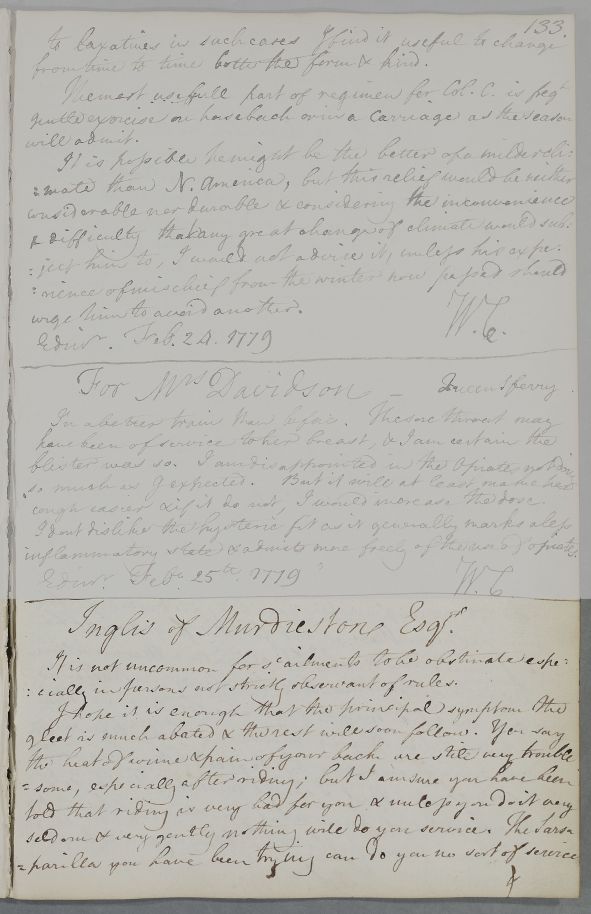 133.
to laxatives in such cases I find it useful to change
from time to time both the form & kind.
The most usefull part of regimen for Col. C. is feqt
gentle exercise on horseback or in a Carriage as the season
will admit.
It is possible he might be the better of a milder cli:
:mate than N. America, but this relief would be neither
considerable nor durable & considering the inconvenience
& difficulty that any great change of climate would sub:
:ject him to, I would not advise it, unless his expe:
:rience of mischief from the winter now passed should
urge him to avoid another.
Edinr. Feb. 24. 1779
W. C.
For Mrs Davidson — Queensferry
In a better train than before. The sore throat may
have been of service to her breast, & I am certain the
blister was so. I am disappointed in the Opiate, not doing
so much as I expected. But it will at least make her
cough easier & if it do not, I would increase the dose.
I dont dislike the hysteric fit as it generally marks a less
inflammatory state & admits more freely of the use of opiate.
Edinr. Feby. 25th 1779
W. C
Inglis of Murdiestone Esqr.
It is not uncommon for sc ailments to be obstinate espe:
:cially in persons not strictly observant of rules.
I hope it is enough that the principal symptom the
gleet is much abated & the rest will soon follow. You say
the heat of urine & pain of your back are still very trouble
=some, especially after riding; but I am sure you have been
told that riding is very bad for you & unless you do it very
seldom & very gently nothing will do you service. The Sarsa
=parilla you have been trying can do you no sort of service
&